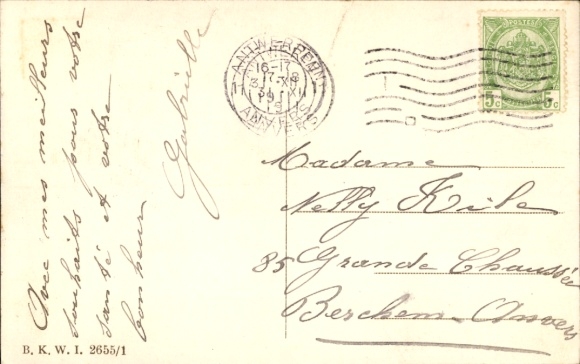 Avec mes meilleurs
souhaits pour votre
santé et votre
bonheur
Gabrielle
ANTWERPEN
16-17
ANVERS
POSTES
5c 5c
Madame
Nelly
85 Grande Chaussée
Berchem-Anvers
B. K. W. I. 2655/1